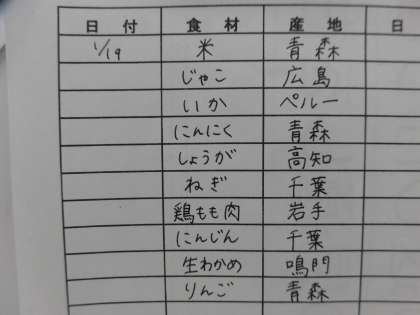 日付 食材 産地 日
1/19 米 青森
じゃこ 広島
いか ペルー
にんにく 青森
しょうが 高知
ねぎ 千葉
鶏もも肉 岩手
にんじん 千葉
生わかめ 鳴門
りんご 青森